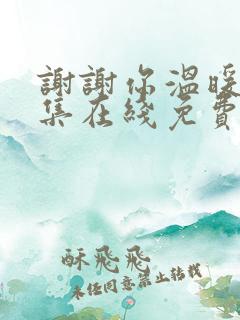 謝謝你溫暖
集在綫免費
酥飛飛
未經同意禁止轉載